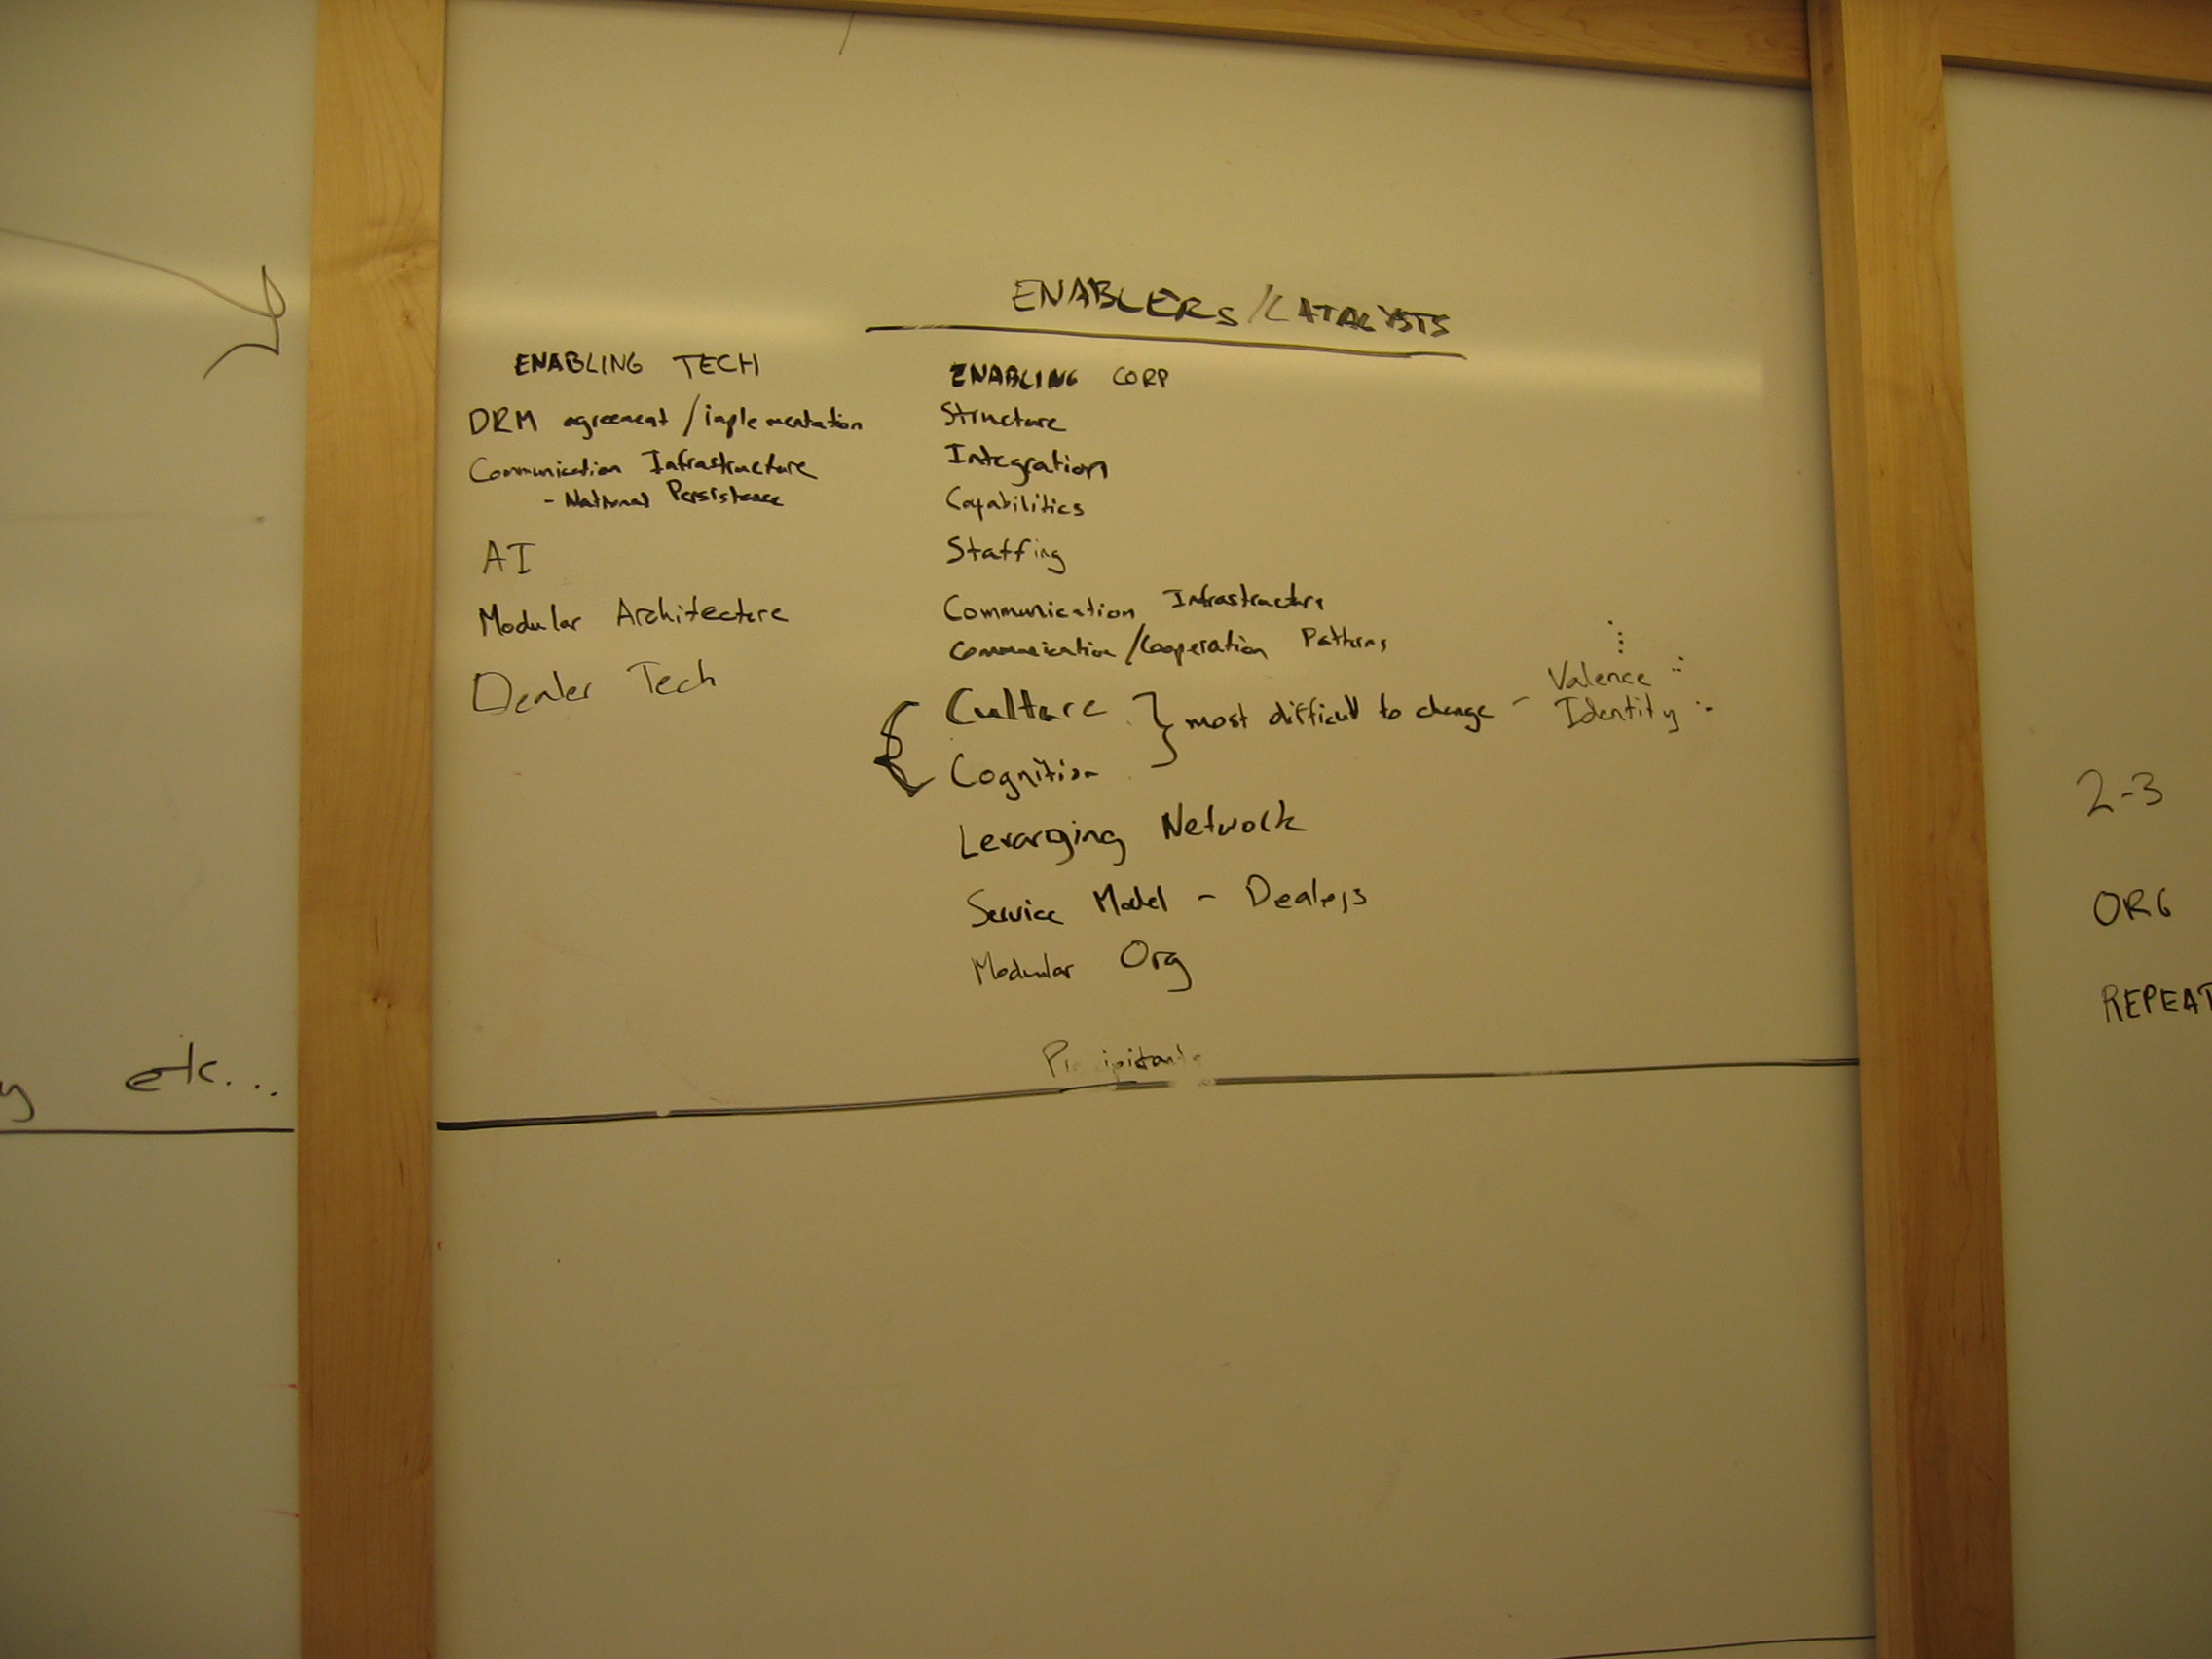 ENABLERS/CATALYSTS
ENABLING TECH
DRM agreement/implementation
Communication Infrastructure
- National Persistance
AI
Modular Architecture
Dealer Tech
ENABLING CORP
Structure
Integration
Capabilities
Staffing
Communication Infrastructure
Communication/Cooperation Patterns
Culture } most difficult to change - Valence
Identity
Cognition
Leveraging Network
Service Model - Dealers
Modular Org
etc...
2-3
ORG
REPEAT